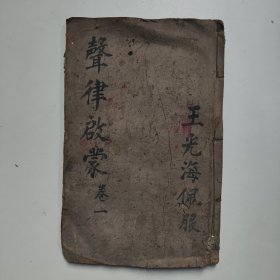 王光海佩服
聲律啟蒙卷一